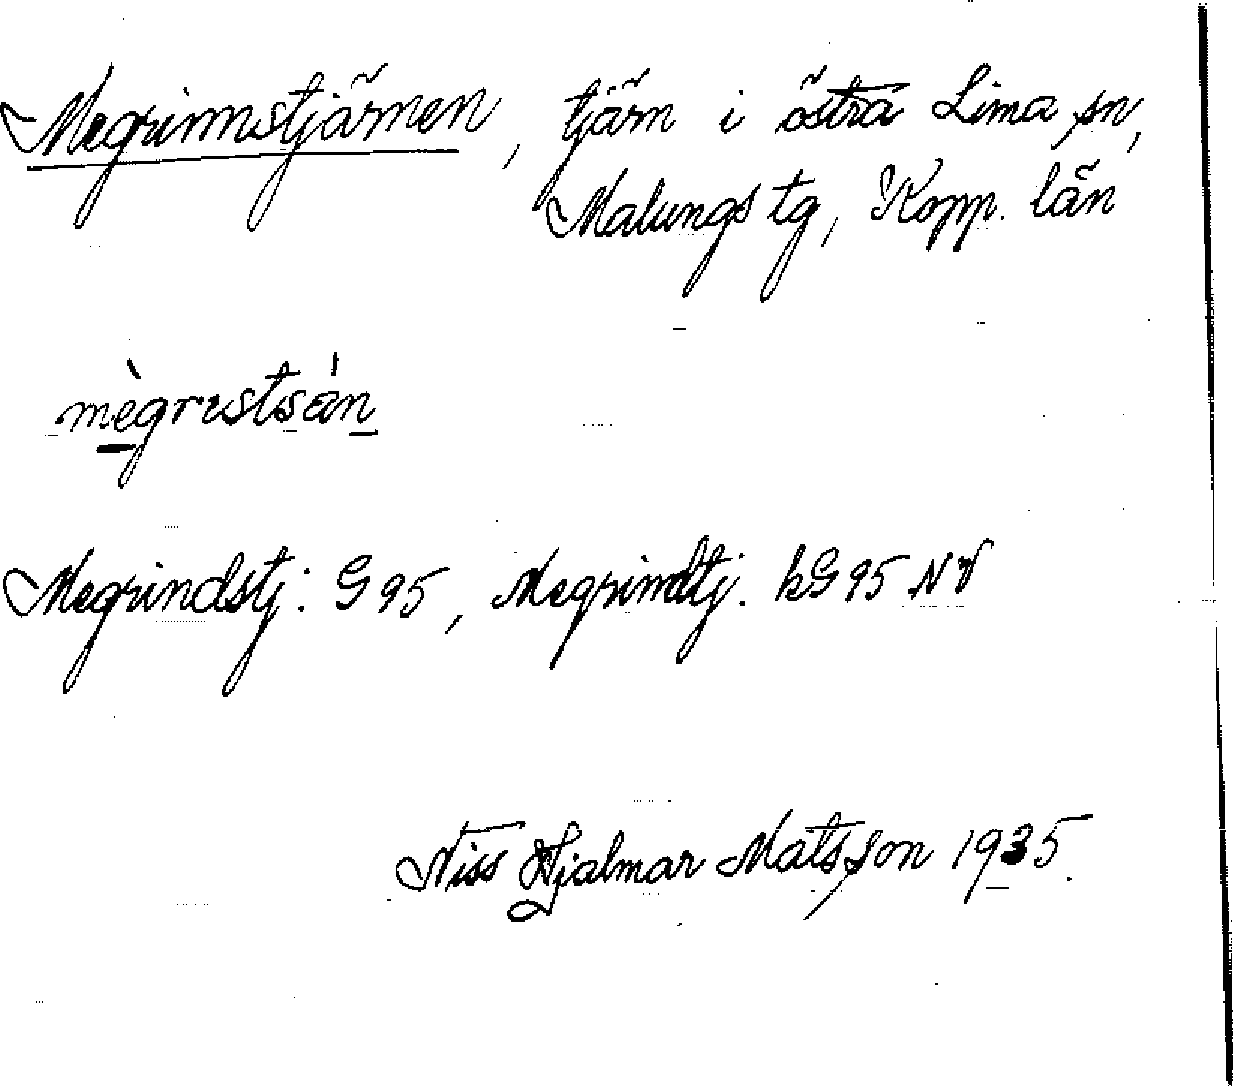 Megrinnstjärnen, tjärn i östra Lima sn,
Malungs tg, Kopp. län
mègrɪstsän
Megrindstj: G 95, Megrindtj. kG 95 NV
Niss Hjalmar Matsson 1935.